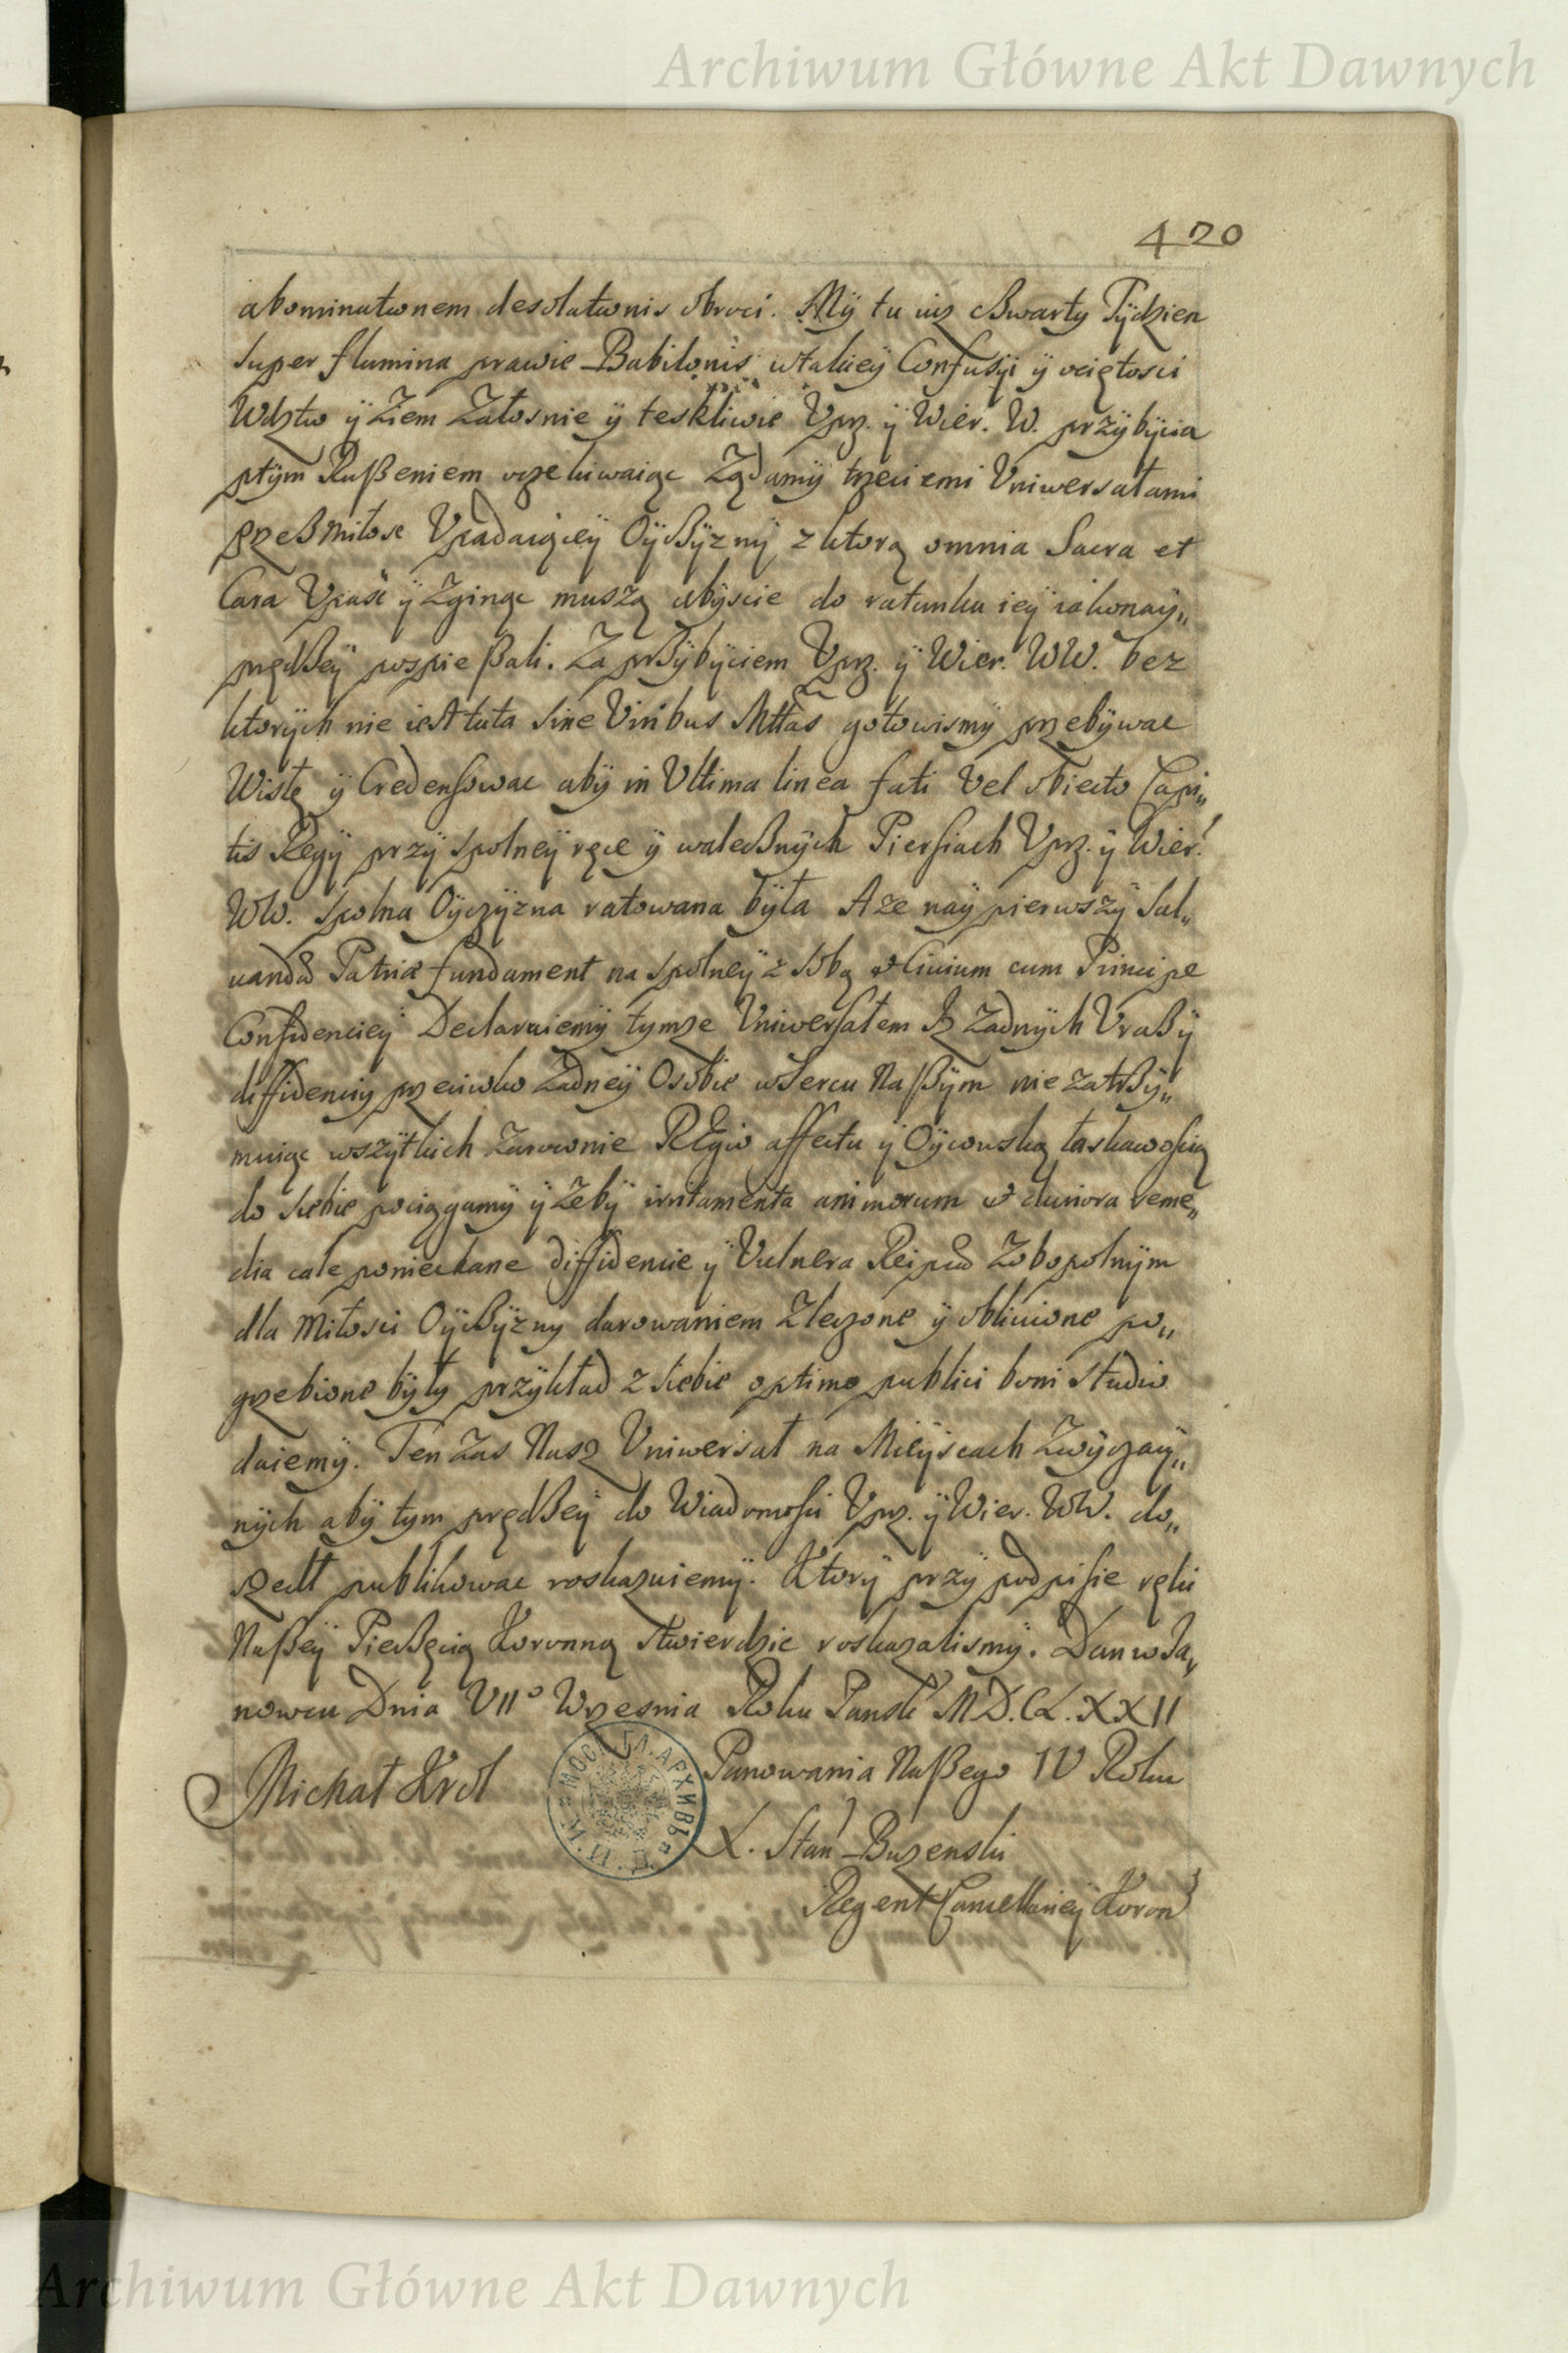 Archiwum Główne Akt Dawnych
420
abominationem desolationis obroci. My tu iuz czwarty Tydzien
super flumina prawie Babilonis w takiey Confusyi y ociętosci
Wdztw y Ziem Załosnie y teskliwie Uprz. y Wier. W. przybycia
z tym Ruszeniem oczekiwaiąc Ządamy trzeciemi Uniwersałami
przesz miłosc Upadaiącey Oyczyzny z ktorą omnia Sacra et
Cara Upasc y Zginąc muszą abyscie do ratunku iey iakonay„
prędszey pospieszali. Za przybyciem Uprz. y Wier. WW. bez
ktorych nie iest tuta sine Viribus Mttas gotowismy przebywac
Wisłę y Credensowac aby in Ultima linea fati vel obiecto Capi„
tis Regij przy spolney ręce y walecznych Piersiach Uprz. y Wier.
WW. spolna Oyczyzna ratowana była A ze naypierwszy Sal„
uandae Patriae fundament na spolney z sobą et Ciuium cum Principe
Confidenciey Declaruiemy tymze Uniwersałem Iz Zadnych Urazy
diffidenciy przeciwko Zadney Osobie w Sercu Naszym nie zatrzy„
muiąc wszytkich Zarownie REgio affectu y Oycowską łaskawoscią
do siebie pociągamy y Zeby irritamenta animorum et duriora reme„
dia cale poniechane diffidencie y Vulnera Reipub Zobopolnym
dla Miłosci Oyczyzny darowaniem Zleczone y obliuione po„
grzebione były przykład z siebie optimo publici boni studio
daiemy. Ten Zas Nasz Uniwersał na Mieyscach Zwyczay„
nych aby tym prędszey do Wiadomosci Uprz. y Wier. WW. do„
szedł publikowac roskazuiemy. Ktory przy podpisie ręki
Naszey Pieczęcią Koronną stwierdzic roskazalismy. Dan w Ja„
nowcu Dnia VII° Wrzesnia Roku Pansk M.D.C.L.XXII
Panowania Naszego IV Roku
Michał Krol
МОСК. ГЛ. АРХИВЪ М.И.Д.
X. Stan Buzenski
Regent Cancellariey Koron
Archiwum Główne Akt Dawnych